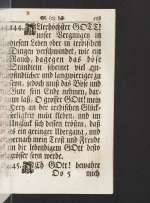 144. Allerhöchster GOTT!
unser Vergnügen in
diesem Leben oder in irrdischen
Dingen verschwindet, wie ein
Rauch, dagegen das böse
Stündlein scheinet viel
pfindlicher und langwieriger zu
seyn, jedoch muß das Böse und
Gute sein Ende nehmen, dar-
um laß, O grosser GOtt! mein
Hertz an der irrdischen Glück-
seligkeit nicht kleben, und im
Unglück sich dessen trösten, daß
es ein geringer Übergang, und
hernach mein Trost und Freude
in der lebendigem GOtt desto
grösser seyn werde.
145. Ach GOtt! bewahre
Oo 5 mich